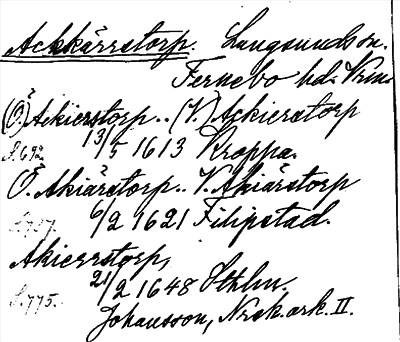 Ackkärrstorp. Långsunds sn.
Fernebo hd. Vrml
(Ö.) Ackierstorp.. (V.) Ackierstorp
S. 692. 13/5 1613 Kroppa.
Ö. Akiärstorp.. V. Akiärstorp
S. 737. 6/2 1621 Filipstad.
Akierrstorp,
S. 775. 21/2 1648 Sthlm.
Johansson, Norsk. ark. II.